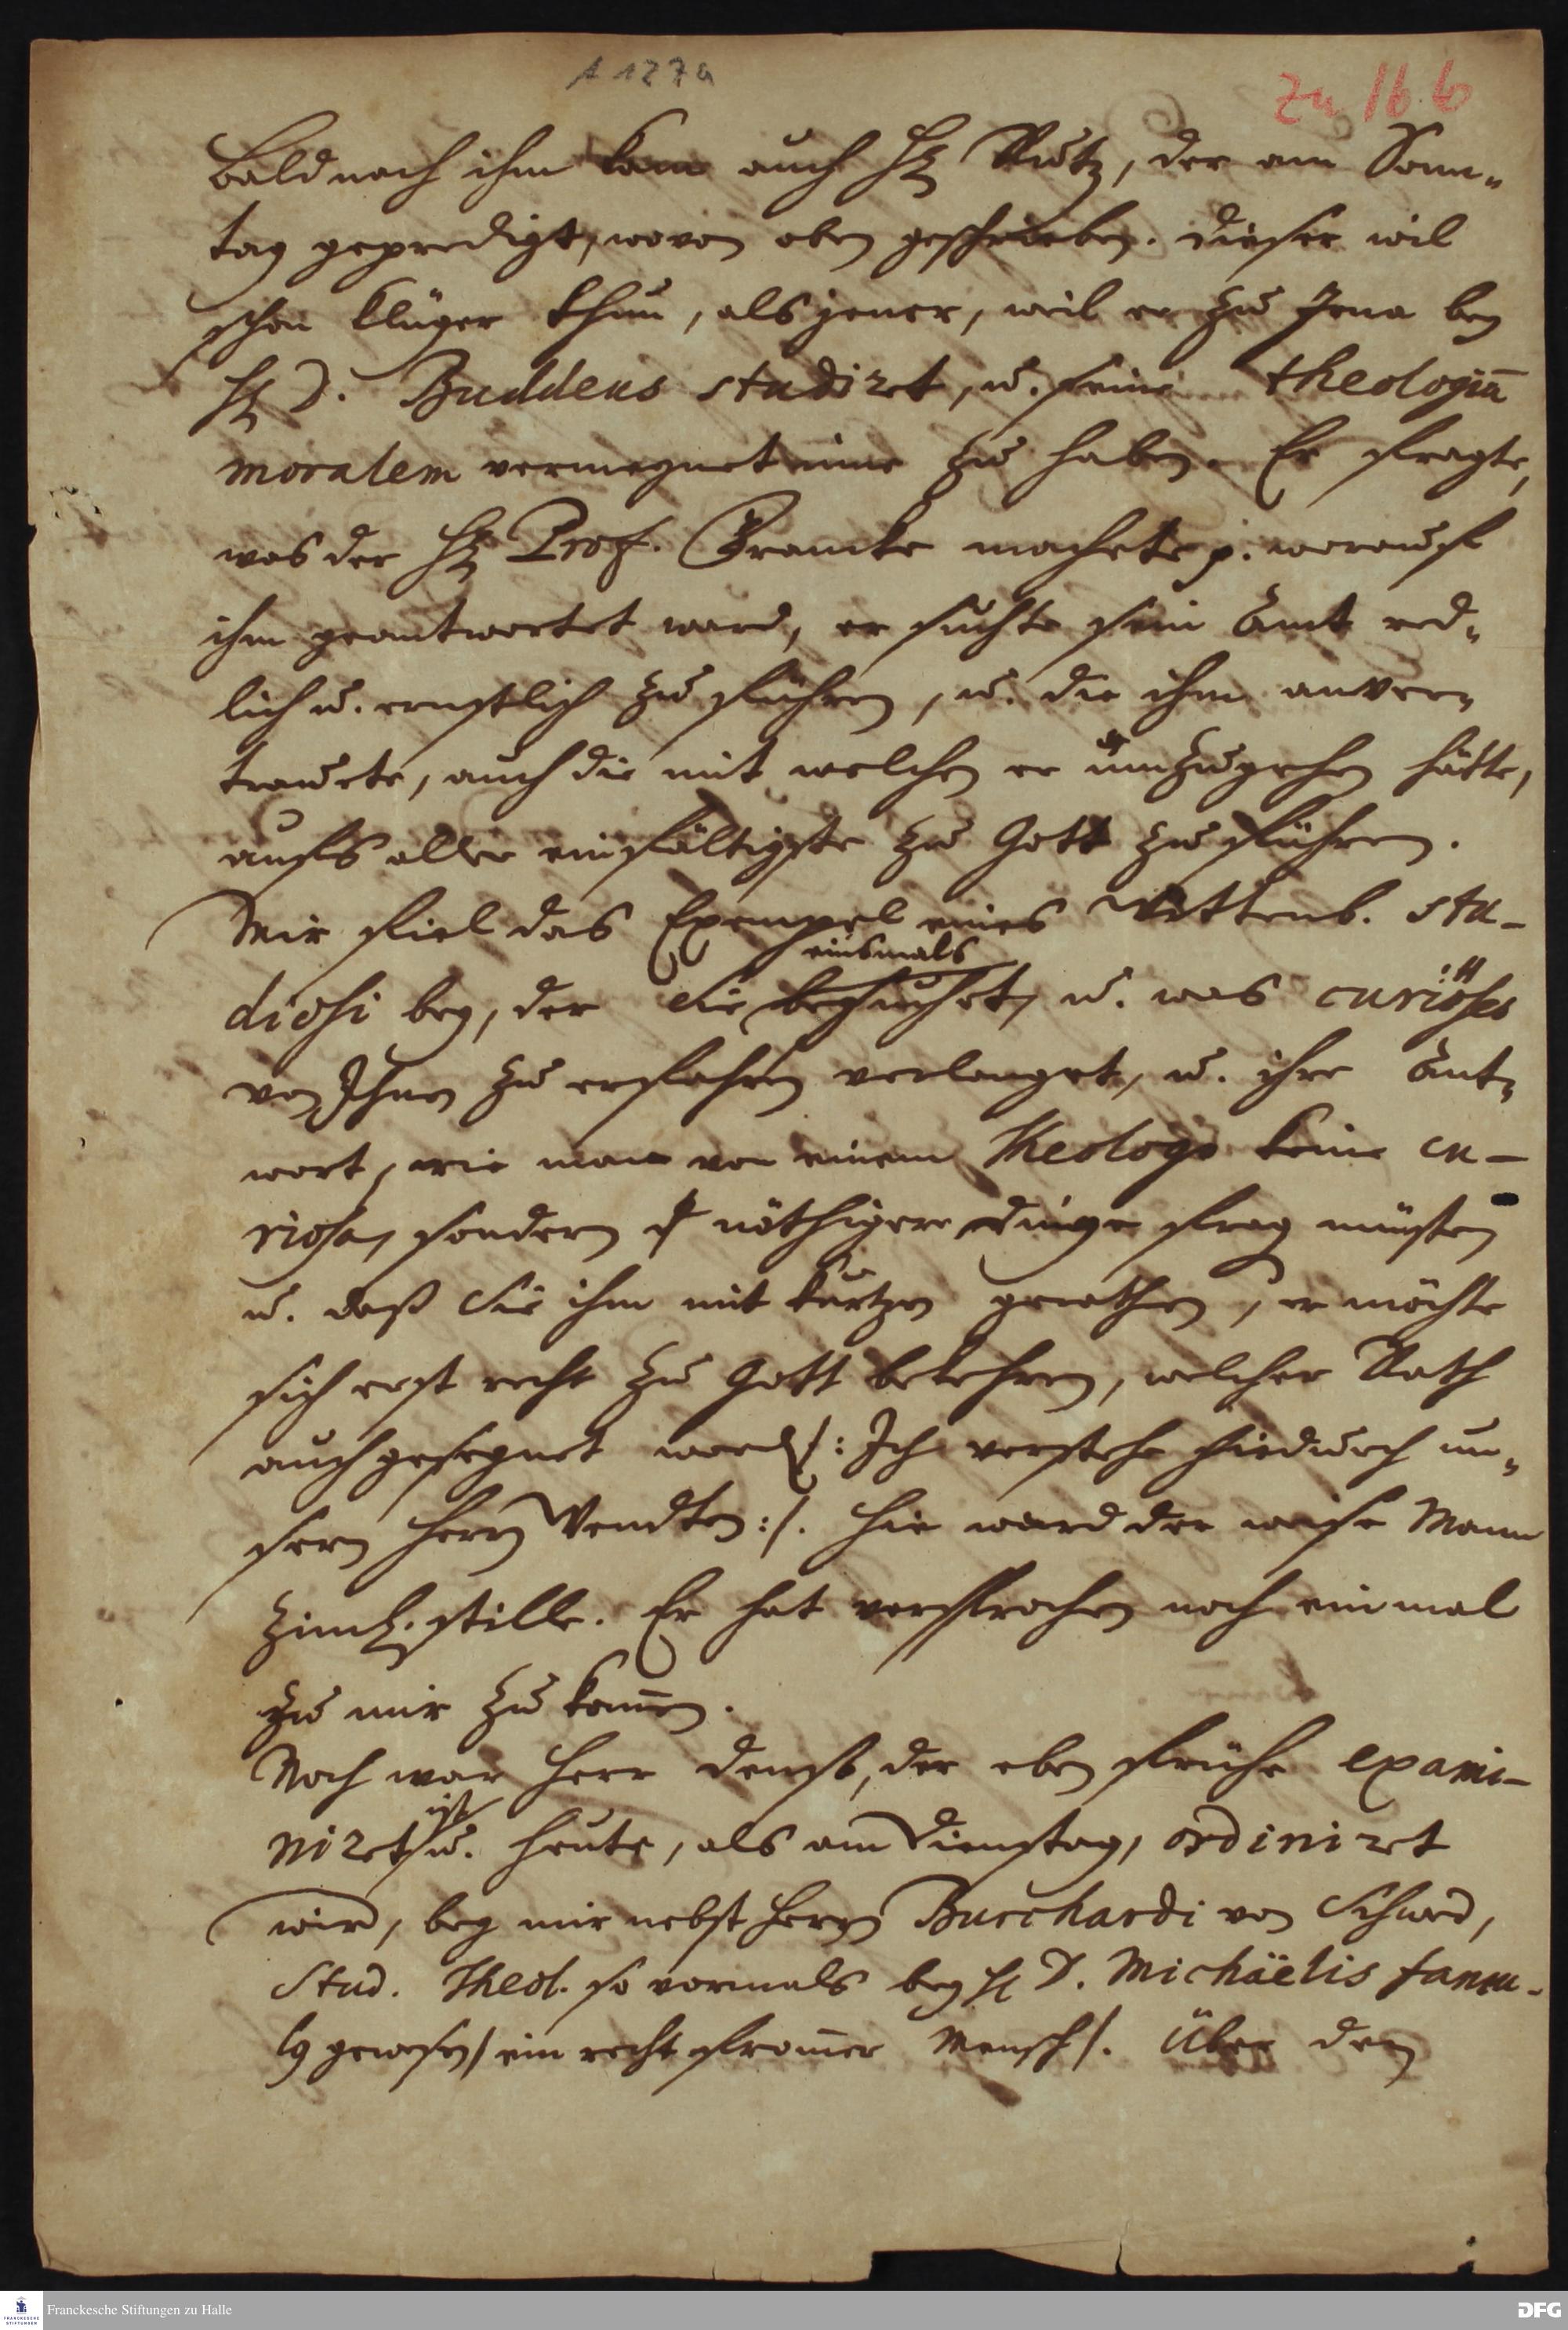 A 127a
zu 166
Bald nach ihm kam auch H. Rutz, der am Sonn-
tag geprediget, wovon oben geschrieben. Dieser wil
schon klüger thun, als jener, weil er zu Jena bey
H. D. Buddeus studiret, u. seine theologiā
moralem vermeynet inne zu haben. Er fragte,
was der H. Prof. Francke machete p. worauf
ihm geantwortet ward, er suchte sein Amt red-
lich u. ernstlich zu führen, u. die ihm anver-
trauete, auch die mit welchen er umzugehen hätte,
aufs aller einfältigste zu Gott zu führen.
Mir fiel das Exempel eines Wittenb. stu-
diosi bey, der Sie einsmals besuchet, u. was curiöses
von Ihnen zu erfahren verlanget, u. ihre Ant-
wort, wie man von einem Theologo keine cu-
riosa, sondern nöthigere Dinge frag müsten
u. daß Sie ihm mit kurtzen gerathen, er möchte
sich erst recht zu Gott bekehren, welcher Rath
auch gesegnet word /: Ich verstehe hiedurch un-
sern Herrn Wendten :/. Hie ward der weise Mann
zimL. stille. Er hat versprochen noch ein mal
zu mir zu kom̄en.
Noch war Herr Denst, der eben frühe exami-
niret ist u. heute, als am Dienstag, ordiniret
wird, bey mir nebst Herrn Burchardi von
Stud. Theol. so vormals bey H. D. Michäelis famu-
lq gewesen / ein recht from̄er Mensch /. Über den
Franckesche Stiftungen zu Halle
DFG